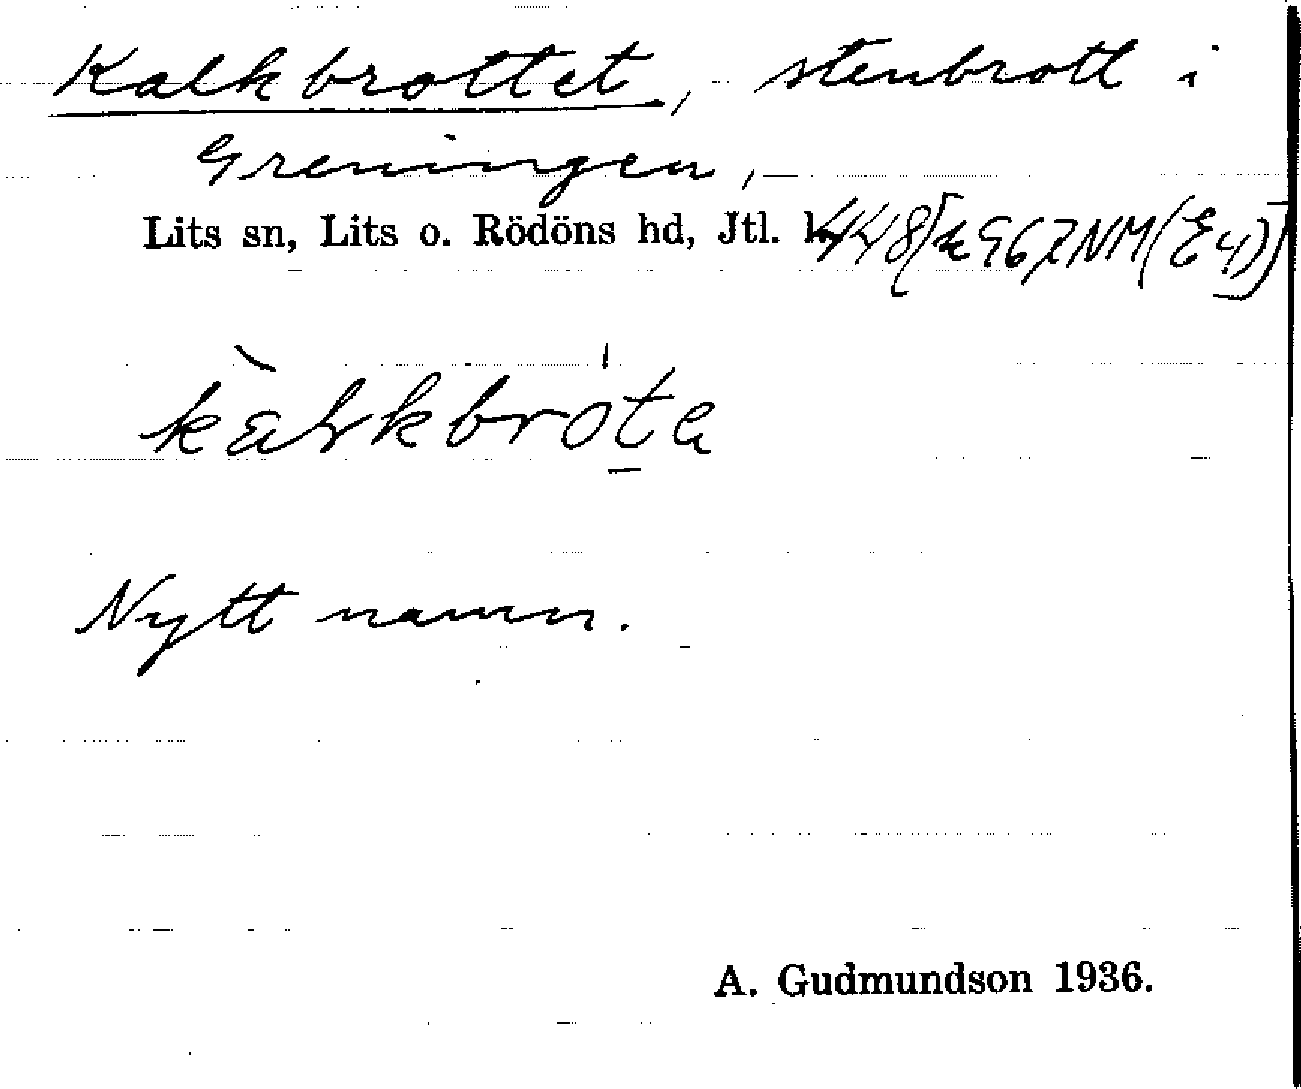 Kalkbrottet, stenbrott i
Greningen,
Lits sn, Lits o. Rödöns hd, Jtl. l.
kalkbrota
Nytt namn.
A. Gudmundson 1936.